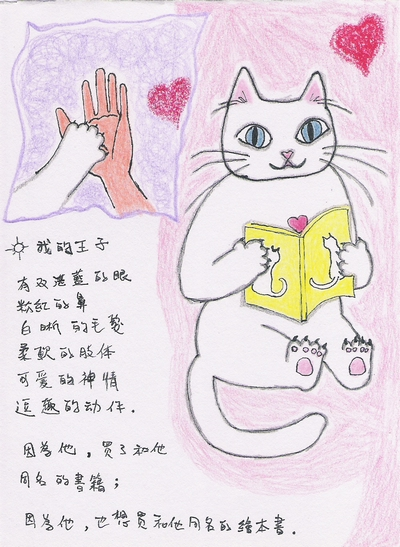 我的王子
有双湛藍的眼
粉紅的鼻
白晰的毛髮
柔軟的肢体
可爱的神情
逗趣的动作.
因為他，買了和他
同名的書籍；
因為他，也想買和他同名的繪本書.